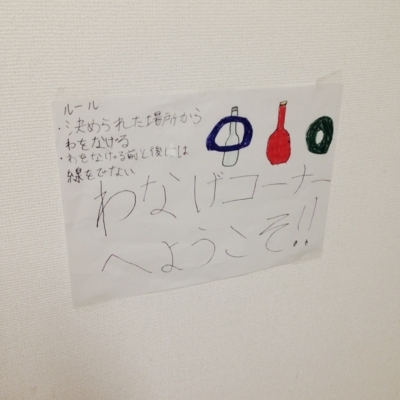 ルール
・決められた場所から
わをなげる
・わをなげる前と後には
線をでない
わなげコーナー
へようこそ!!